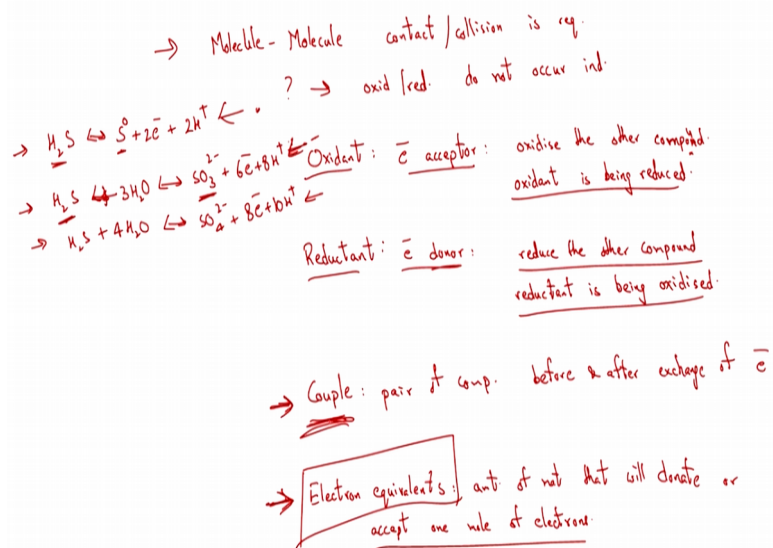 → Moleclile - Molecule contact / collision is req.
? → oxid / red. do not occur ind.
→ H₂S ↔ S⁰ + 2e⁻ + 2H⁺ ← .
→ H₂S + 3H₂O ↔ SO₃²⁻ + 6e⁻ + 8H⁺ ←
→ H₂S + 4H₂O ↔ SO₄²⁻ + 8e⁻ + 10H⁺ ←
Oxidant : e⁻ acceptor : oxidise the other compound.
oxidant is being reduced.
Reductant : e⁻ donor : reduce the other compound
reductant is being oxidised.
→ Couple : pair of comp. before & after exchage of e⁻
→ Electron equivalents : amt. of mat that will donate or
accept one mole of electrons.